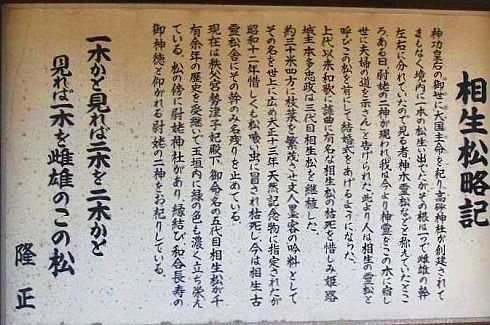 相生松略記
神功皇后の御世に大国主命を祀り高砂神社が創建されて
まもなく境内に一本の松生い出でたがその根は一つで雌雄の幹
左右に分れていたので見る者、神木霊松などと称えていたとこ
ろ、ある日、尉姥の二神が現われ我は今より神霊をこの木に宿し
世に夫婦の道を示さんと告げられた。此より人は相生の霊松と
呼びこの松を前にして結婚式をあげるようになった。
上代以来和歌に謡曲に有名な相生松の枯死を惜しみ姫路
城主本多忠政は三代目相生松を継植した。
約三十米四方に枝葉を繁茂させ文人墨客の吟料として
その名を世上に広め大正十三年天然記念物に指定されたが
昭和十二年惜しくも松喰い虫に冒され枯死し今は相生古
霊松舎にその幹のみ名残りを止めている。
現在は秩父宮勢津子妃殿下御命名の五代目相生松が千
有余年の歴史を受継いで玉垣内に緑の色も濃く立ち栄え
ている。松の傍に尉姥神社があり、縁結び、和合長寿の
御神徳と仰がれる尉姥の二神をお祀りしている。
一木かと見れば二木を二木かと
見れば一木を雌雄のこの松
隆正